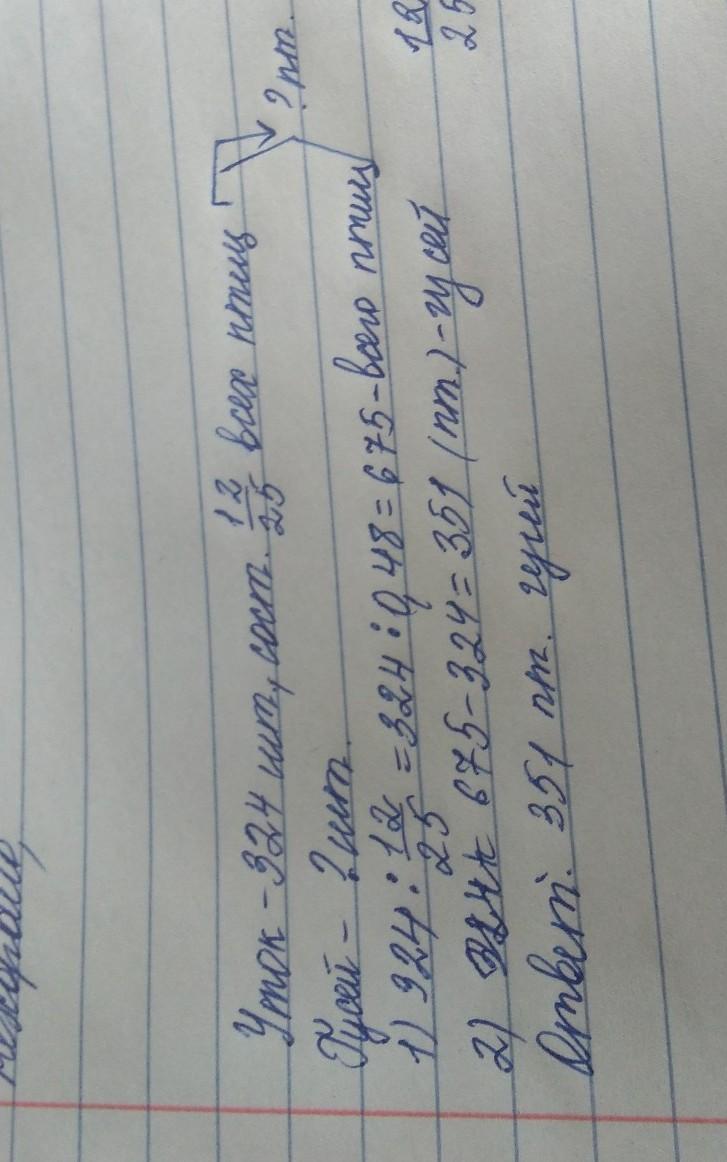 Уток - 324 шт, сост. 12/25 всех птиц ? пт.
Гусей - ? шт.
1) 324 : 12/25 = 324 : 0,48 = 675 - всего птиц
12/25
2) 675 - 324 = 351 (пт.) - гусей
Ответ: 351 пт. гусей